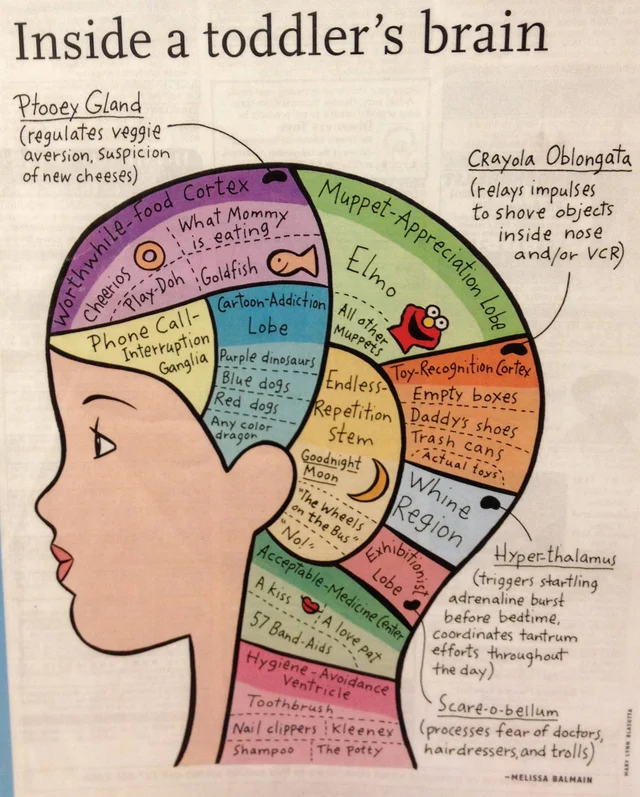 Inside a toddler's brain
Ptooey Gland
(regulates veggie
aversion, suspicion
of new cheeses)
Crayola Oblongata
(relays impulses
to shove objects
inside nose
and/or VCR)
Worthwhile-Food Cortex
What Mommy
is eating
Cheerios
Play-Doh
Goldfish
Muppet-Appreciation Lobe
Elmo
All other
Muppets
Phone Call-
Interruption
Ganglia
Cartoon-Addiction
Lobe
Purple dinosaurs
Blue dogs
Red dogs
Any color
dragon
Endless-
Repetition
Stem
Goodnight
Moon
"The Wheels
on the Bus"
"No!"
Toy-Recognition Cortex
Empty boxes
Daddy's shoes
Trash cans
Actual toys
Whine
Region
Exhibitionist
Lobe
Hyper-thalamus
(triggers startling
adrenaline burst
before bedtime,
coordinates tantrum
efforts throughout
the day)
Acceptable-Medicine Center
A kiss
A love pat
57 Band-Aids
Hygiene-Avoidance
Ventricle
Toothbrush
Nail clippers
Kleenex
Shampoo
The potty
Scare-o-bellum
(processes fear of doctors,
hairdressers, and trolls)
-MELISSA BALMAIN